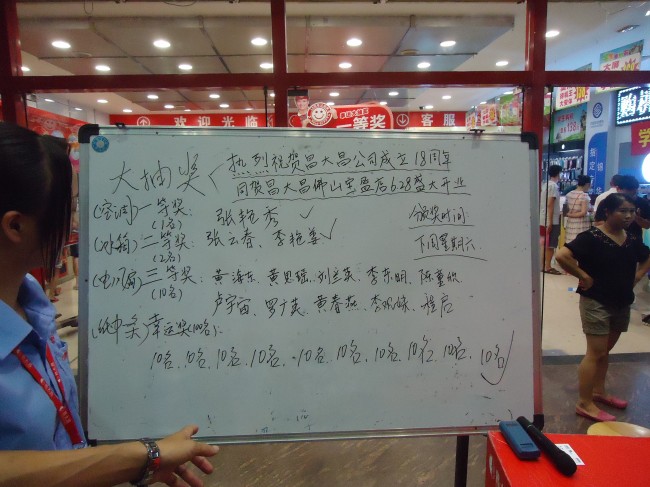 欢迎光临
一等奖
客服
购
大抽奖
热烈祝贺昌大昌公司成立18周年
同贺昌大昌佛山宝盈店6.28盛大开业
(空调)一等奖: 张艳秀 ✓
(1名)
颁奖时间
(冰箱)二等奖: 张云春、李艳姜 ✓
(2名)
下周星期六
三等奖: 黄海东、黄见瑶、刘立英、李东明、陈
(10名)
卢宇宙、罗广英、黄春燕、李
幸运奖(100名):
10名、10名、10名、10名、10名、10名、10名、10名、10名、10名